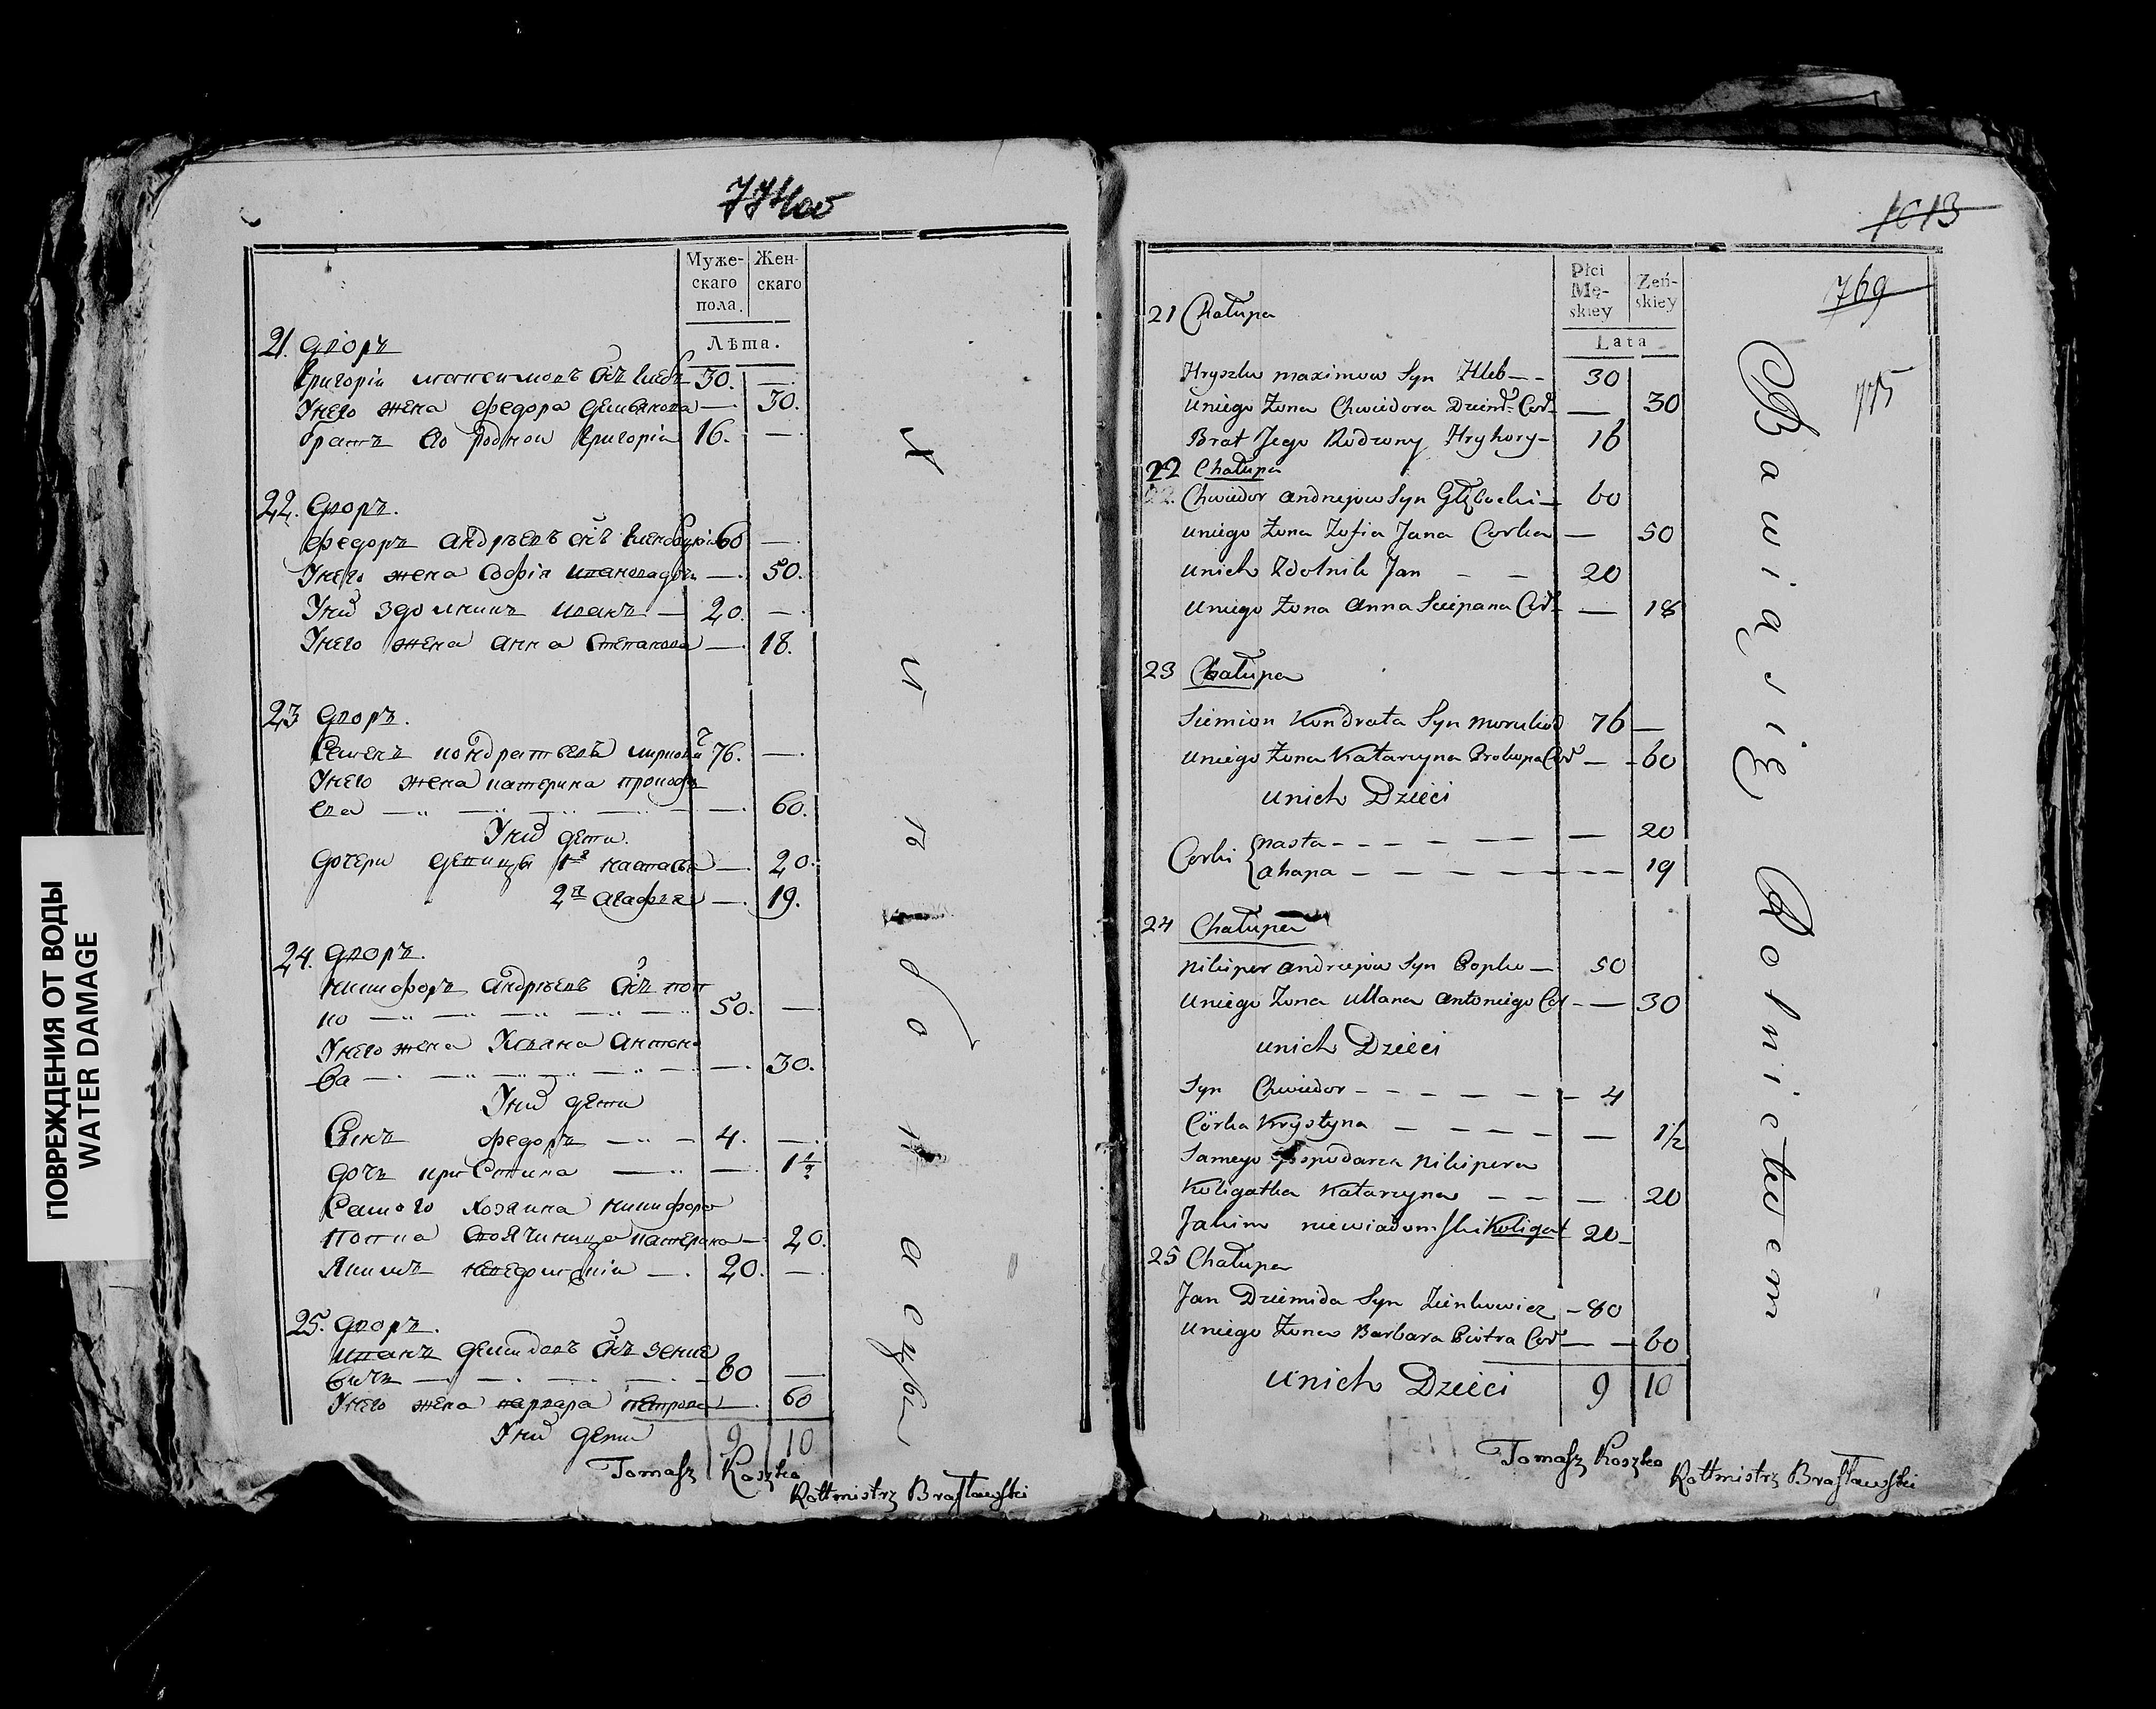 774об
Муже-
скаго
пола.
Жен-
скаго
Лѣта.
21. дворъ
Григорій максимовъ снъ Глебъ 30. —
Унего жена федора демьянова — 30.
братъ его родной Григорій 16. —
22. дворъ.
федоръ андрѣевъ снъ 60 —
Унего жена Софія иванова дочь — 50.
Уних здолникъ иванъ — 20. —
Унего жена анна Степанова — 18.
23 дворъ.
Семенъ кондратьевъ 76. —
Унего жена катерина прокофь
ева — 60.
Уних дети.
дочери девицы 1я настасья — 20.
2я агафья — 19.
24. дворъ.
никифоръ андрѣевъ снъ поп
ко — 50. —
Унего жена Ульяна антоно
ва — 30.
Уних дети
Сынъ федоръ — 4. —
дочь кристина — 1 1/2
Самого хозяина никифора
катерина — 20.
Якимъ — 20. —
25. дворъ.
иванъ демидовъ снъ зенке
вичъ — 80 —
Унего жена варвара петрова — 60
Уних дети 9 10
Tomasz Koszko
Rotmistrz Brasławski
х л ѣ б о п а ш
ПОВРЕЖДЕНИЯ ОТ ВОДЫ
WATER DAMAGE
1013
769
775
Płci
Mę-
skiey
Zeń-
skiey
Lata
21 Chałupa
Hryszko maximow Syn Hleb — 30
uniego Zona Chwiedora Dziem. Cor. — 30
Brat Jego Rodzony Hryhory — 16
22 Chałupa
22. Chwiedor andrejow Syn Głębocki — 60
uniego Zona Zofia Jana Corka — 50
unich Zdolnik Jan — — 20
uniego Zona anna Sciepana Cor. — 18
23 Chałupa
Siemion Kondrata Syn 76 —
uniego Zona Katarzyna Prokopa Cor — 60
unich Dzieci
Corki nasta — — — — — 20
ahapa — — — — — 19
24 Chałupa
nikiper andrejow Syn Popko — 50
uniego Zona ullana antoniego Cor — 30
unich Dzieci
Syn Chwiedor — — — — 4
Córka Krystyna — — — — — 1/2
Samego gospodarza nikipera
Koligatka Katarzyna — — — 20
Jakim niewiadomski Koligat 20 —
25 Chałupa
Jan Dziemida Syn Zienkowicz — 80
uniego Zona Barbara Piotra Cor — 60
unich Dzieci 9 10
Tomasz Koszko
Rotmistrz Brasławski
Bawią się Rolnictwem